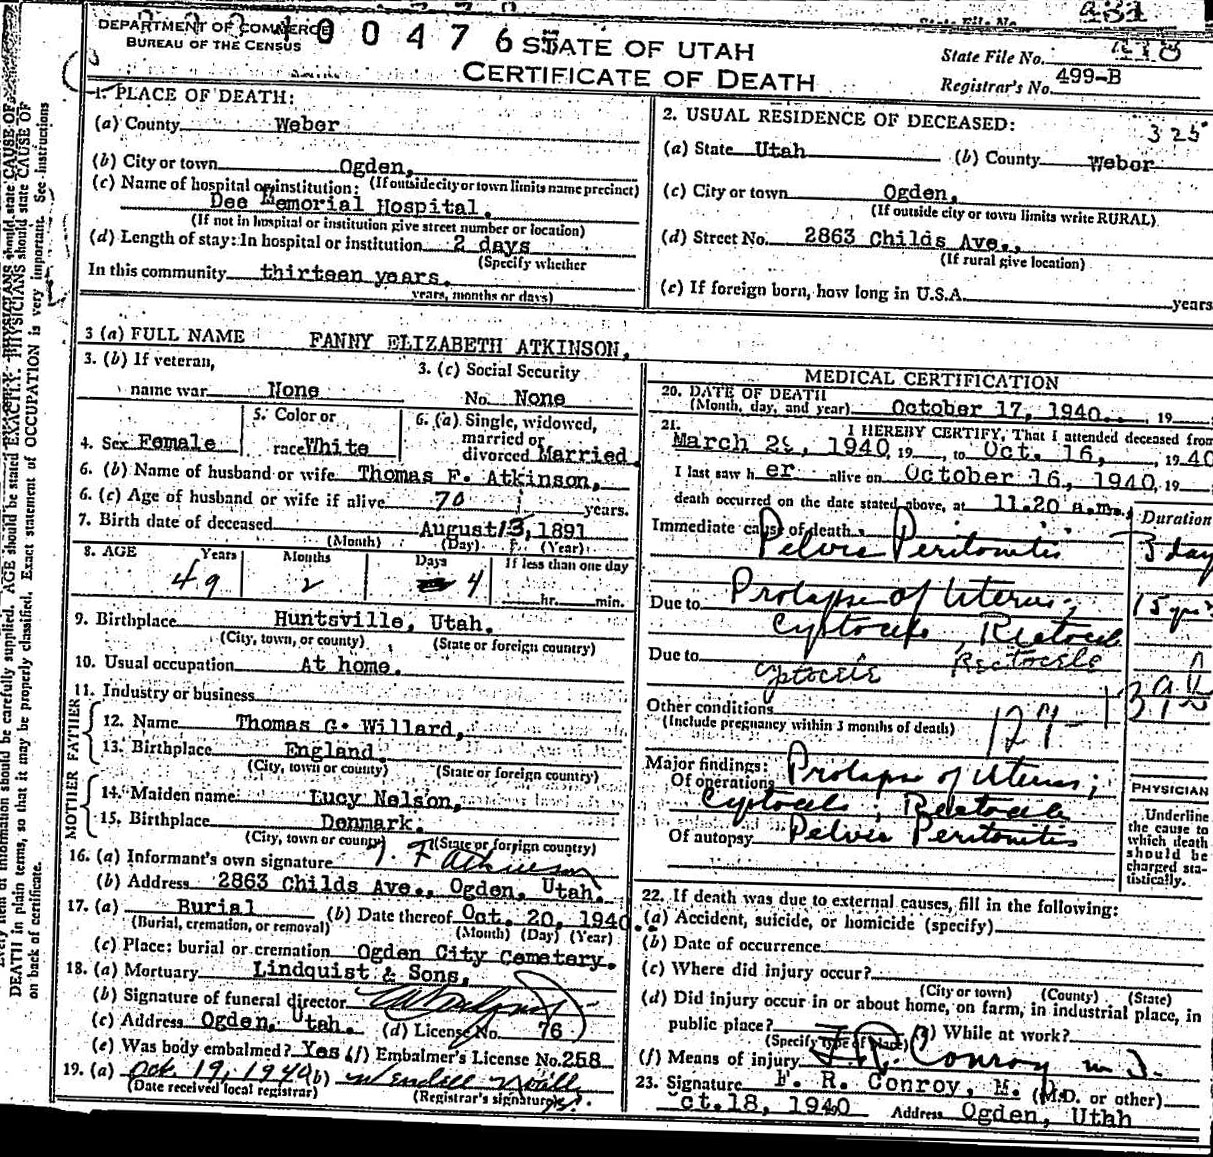 431
DEPARTMENT OF COMMERCE
BUREAU OF THE CENSUS
1 0 0 4 7 6
STATE OF UTAH
CERTIFICATE OF DEATH
State File No.
Registrar's No. 499-B
1. PLACE OF DEATH:
(a) County Weber
(b) City or town Ogden,
(If outside city or town limits name precinct)
(c) Name of hospital or institution:
Dee Memorial Hospital.
(If not in hospital or institution give street number or location)
(d) Length of stay: In hospital or institution 2 days
(Specify whether
In this community thirteen years.
years, months or days)
2. USUAL RESIDENCE OF DECEASED:
325
(a) State Utah (b) County Weber
(c) City or town Ogden,
(If outside city or town limits write RURAL)
(d) Street No. 2863 Childs Ave.,
(If rural give location)
(e) If foreign born, how long in U.S.A. years
3 (a) FULL NAME FANNY ELIZABETH ATKINSON,
3. (b) If veteran,
name war None
3. (c) Social Security
No. None
4. Sex Female
5. Color or
race White
6. (a) Single, widowed,
married or
divorced Married
6. (b) Name of husband or wife Thomas F. Atkinson,
6. (c) Age of husband or wife if alive 70 years.
7. Birth date of deceased August 13, 1891
(Month) (Day) (Year)
8. AGE Years Months Days If less than one day
49 2 4 hr. min.
9. Birthplace Huntsville, Utah.
(City, town, or county) (State or foreign country)
10. Usual occupation At home.
11. Industry or business
FATHER
12. Name Thomas G. Willard,
13. Birthplace England.
(City, town or county) (State or foreign country)
MOTHER
14. Maiden name Lucy Nelson,
15. Birthplace Denmark.
(City, town or county) (State or foreign country)
16. (a) Informant's own signature T. F Atkinson
(b) Address 2863 Childs Ave., Ogden, Utah.
17. (a) Burial (b) Date thereof Oct. 20, 1940
(Burial, cremation, or removal) (Month) (Day) (Year)
(c) Place: burial or cremation Ogden City Cemetery.
18. (a) Mortuary Lindquist & Sons,
(b) Signature of funeral director
(c) Address Ogden, Utah. (d) License No. 76
(e) Was body embalmed? Yes (f) Embalmer's License No. 258
19. (a) Oct. 19, 1940 (b)
(Date received local registrar) (Registrar's signature)
MEDICAL CERTIFICATION
20. DATE OF DEATH
(Month, day, and year) October 17, 1940. 19
21. I HEREBY CERTIFY, That I attended deceased from
March 28, 1940, 19 , to Oct. 16, , 1940
I last saw h er alive on October 16, 1940, 19
death occurred on the date stated above, at 11.20 a.m.
Duration
Immediate cause of death
Pelvic Peritonitis 3 day
Due to Prolapse of Uterus; 15 yrs
Cystocele, Rectocele
Due to
Cystocele Rectocele
Other conditions
(Include pregnancy within 3 months of death)
Major findings:
Of operations Prolapse of Uterus;
Cystocele; Rectocele
Of autopsy Pelvic Peritonitis
PHYSICIAN
Underline
the cause to
which death
should be
charged sta-
tistically.
22. If death was due to external causes, fill in the following:
(a) Accident, suicide, or homicide (specify)
(b) Date of occurrence
(c) Where did injury occur?
(City or town) (County) (State)
(d) Did injury occur in or about home, on farm, in industrial place, in
public place? While at work?
(Specify type of place)
(f) Means of injury
F.R. Conroy M.D.
23. Signature F. R. Conroy, M. (M.D. or other)
ct.18, 1940 Address Ogden, Utah
information should be carefully supplied. AGE should be stated EXACTLY. PHYSICIANS should state CAUSE OF
DEATH in plain terms, so that it may be properly classified. Exact statement of OCCUPATION is very important. See instructions
on back of certificate.